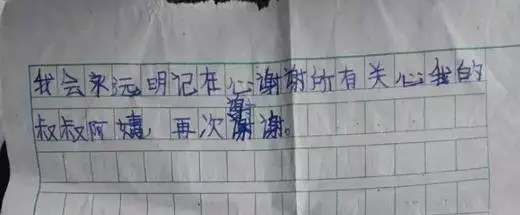 我会永远明记在心谢谢所有关心我的
叔叔阿姨，再次谢谢。